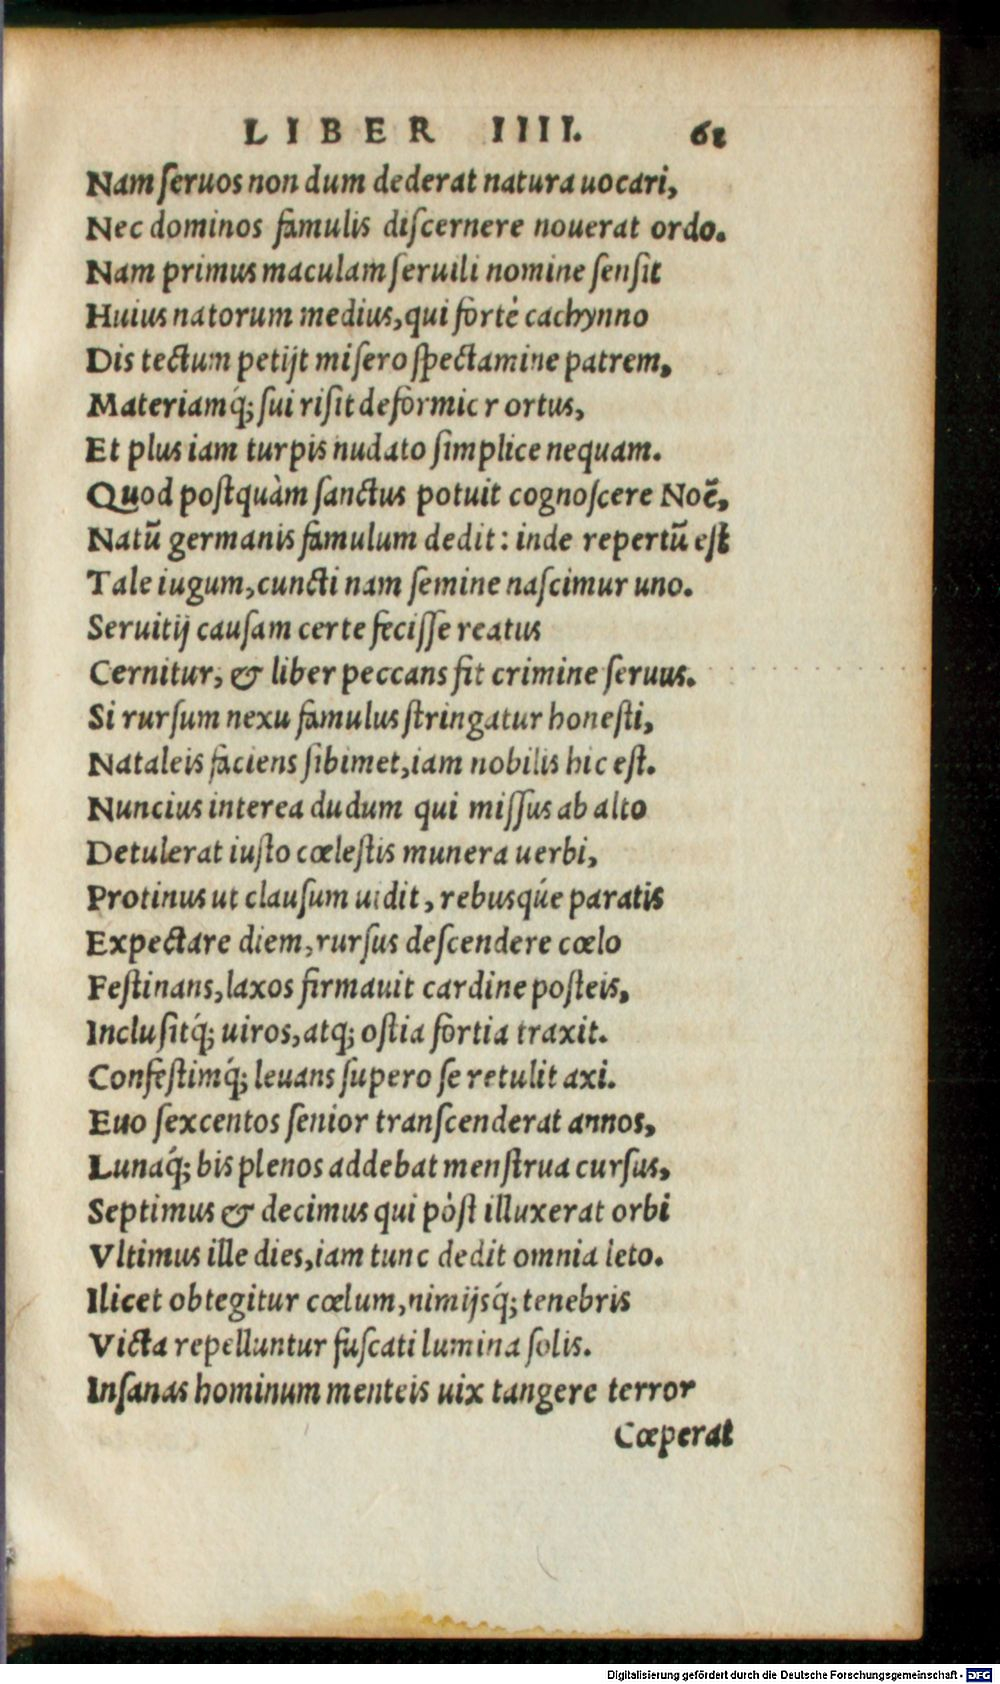 LIBER IIII. 61
Nam ſeruos non dum dederat natura uocari,
Nec dominos famulis diſcernere nouerat ordo.
Nam primus maculam ſeruili nomine ſenſit
Huius natorum medius, qui fortè cachynno
Dis tectum petijt miſero ſpectamine patrem,
Materiamq́; ſui riſit deformic r ortus,
Et plus iam turpis nudato ſimplice nequam.
Quod poſtquàm ſanctus potuit cognoſcere Noē,
Natū germanis famulum dedit: inde repertū eſt
Tale iugum, cuncti nam ſemine naſcimur uno.
Seruitij cauſam certe feciſſe reatus
Cernitur, & liber peccans fit crimine ſeruus.
Si rurſum nexu famulus ſtringatur honeſti,
Nataleis faciens ſibimet, iam nobilis hic eſt.
Nuncius interea dudum qui miſſus ab alto
Detulerat iuſto cœleſtis munera uerbi,
Protinus ut clauſum uidit, rebusq́ue paratis
Expectare diem, rurſus deſcendere cœlo
Feſtinans, laxos firmauit cardine poſteis,
Incluſitq́; uiros, atq; oſtia fortia traxit.
Confeſtimq́; leuans ſupero ſe retulit axi.
Euo ſexcentos ſenior tranſcenderat annos,
Lunaq́; bis plenos addebat menſtrua curſus,
Septimus & decimus qui pòſt illuxerat orbi
Vltimus ille dies, iam tunc dedit omnia leto.
Ilicet obtegitur cœlum, nimijsq́; tenebris
Victa repelluntur fuſcati lumina ſolis.
Inſanas hominum menteis uix tangere terror
Cœperat
Digitalisierung gefördert durch die Deutsche Forschungsgemeinschaft - DFG